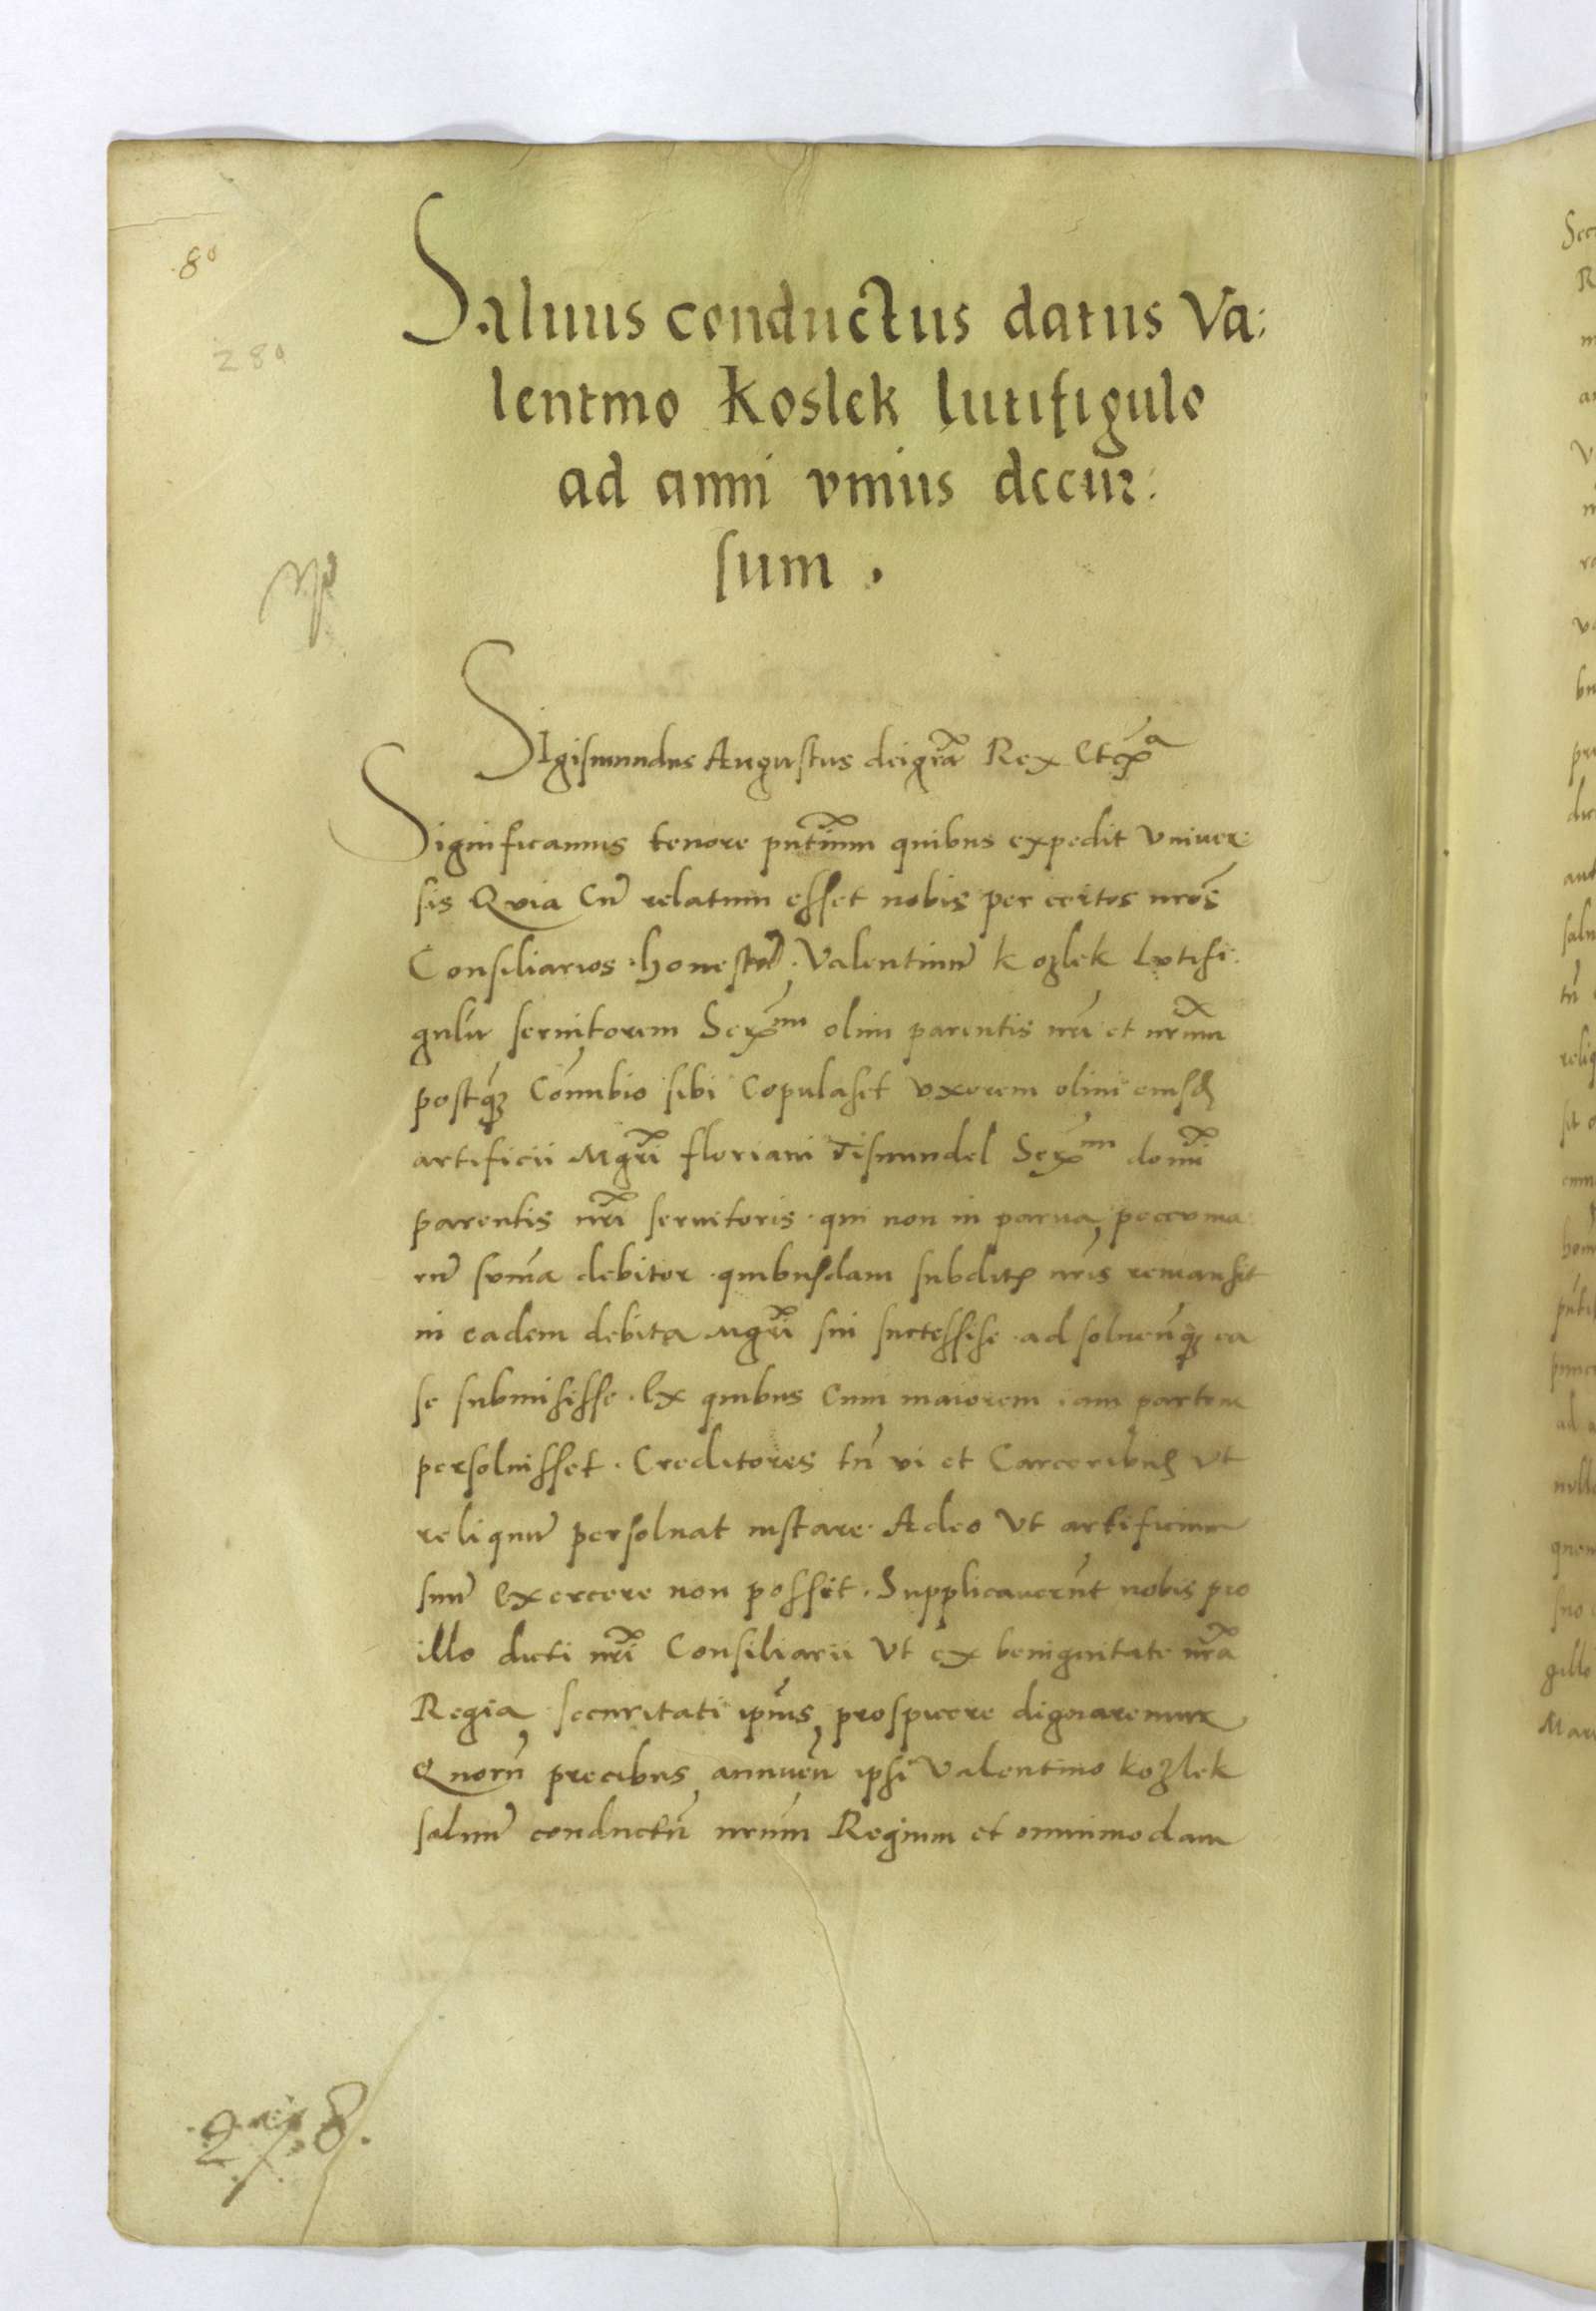 80
280
Saluus conductus datus Va:
lentino Koslek lutifigulo
ad anni vnius decur:
sum.
Sigismundus Augustus dei gra Rex Etc
Significamus tenore pntium quibus expedit vniuer
sis Quia Cu relatum esset nobis per certos nros
Consiliarios. honestu. Valentinu kozlek Lutifi:
gulu seruitorem Ser^mi olim parentis nri et nrum
postq Conubio sibi Copulasset vxorem olim eiusd
artificii Mgri floriani Dismundel Ser^mi domi
parentis nri seruitoris. qui non in parua peccunia
ru summa debitor. quibusdam subditis nris remansit
in eadem debita Mgri sui successisse. ad soluenq ea
se submisisse. Ex quibus Cum maiorem iam partem
persoluisset. Creditores tn vi et Carceribus vt
reliquu persoluat instare. Adeo vt artificium
suu Exercere non possit. Supplicauerut nobis pro
illo dicti nri Consiliarii vt ex benignitate nra
Regia securitati ipius prospicere dignaremur
Quoru precibus annuen ipsi Valentino kozlek
saluu conductu nrum Regium et omnimodam